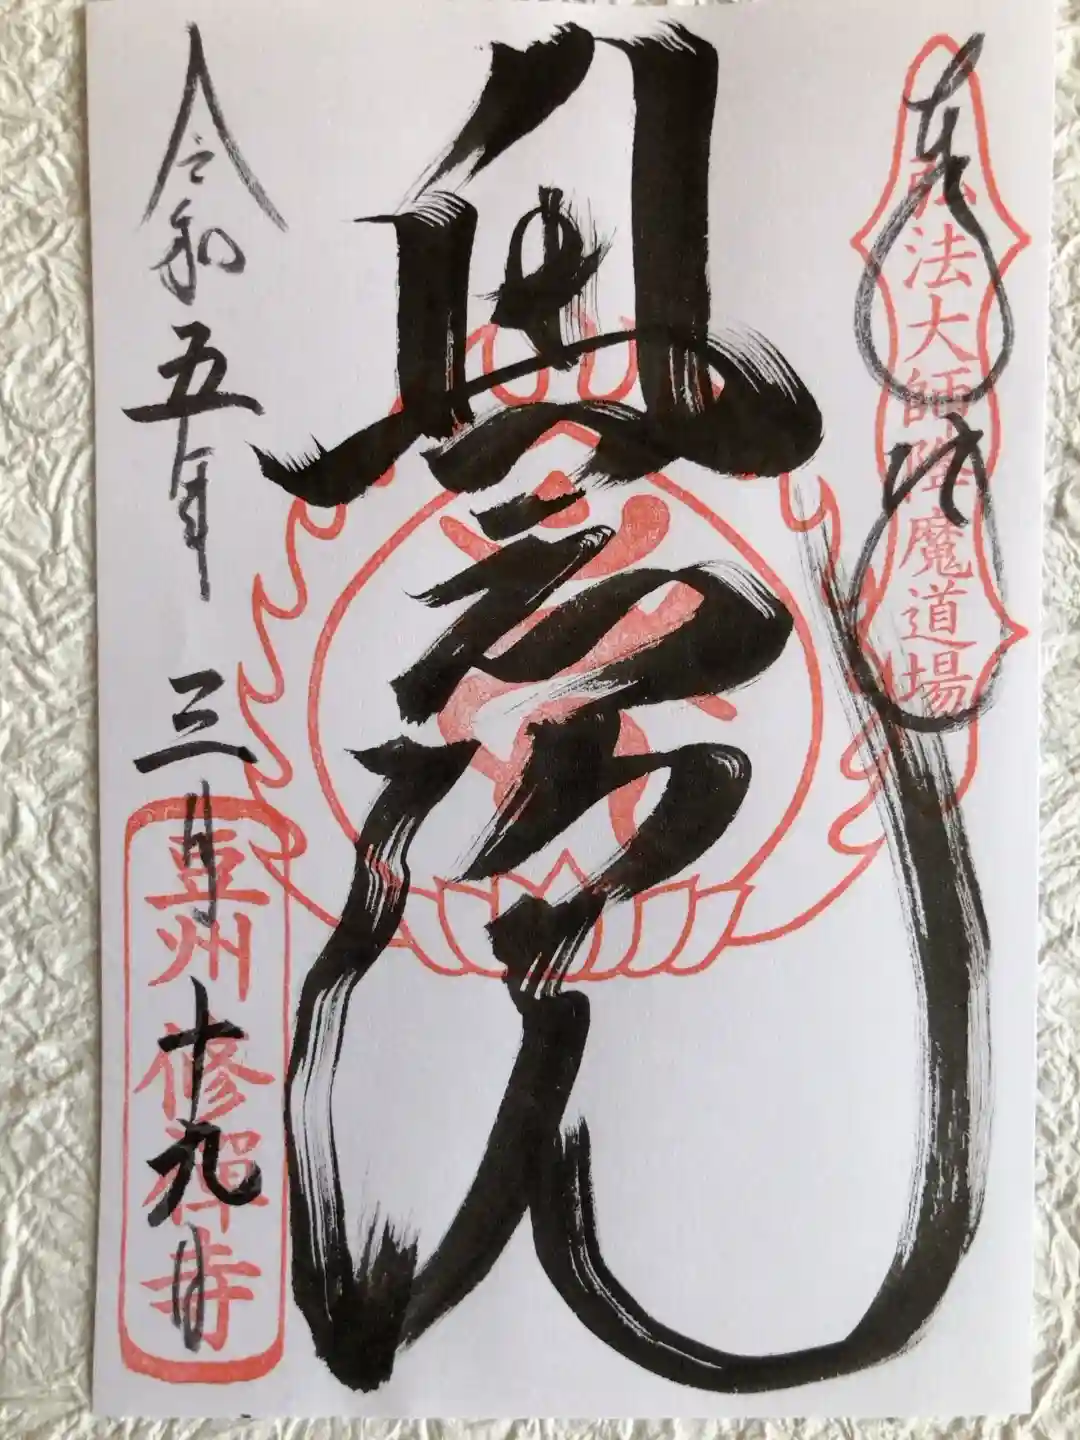 奉拝
弘法大師降魔道場
奥之院
令和五年三月十九日
豆州修禅寺